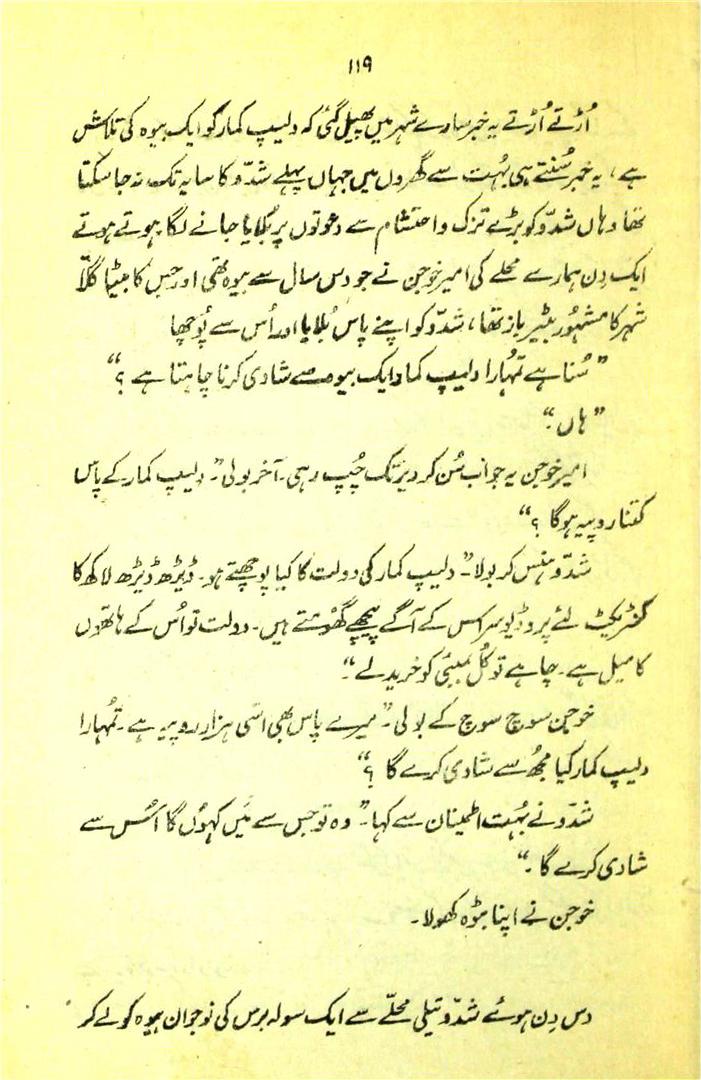 ۱۱۹
اُڑتے اُڑتے یہ خبر سارے شہر میں پھیل گئی کہ دلیپ کمار کو ایک بیوہ کی تلاش
ہے، یہ خبر سُنتے ہی بُہت سے گھروں میں جہاں پہلے شدّو کا سایہ تک نہ جا سکتا
تھا وہاں شدّو کو بڑے تزک و احتشام سے دعوتوں پر بُلایا جانے لگا ہوتے ہوتے
ایک دِن ہمارے محلے کی امیر خوجن نے جو دس سال سے بیوہ تھی اور جس کا بیٹا گلّا
شہر کا مشہُور بٹیر باز تھا، شدّو کو اپنے پاس بُلایا اور اُس سے پُوچھا
”سُنا ہے تمہُارا دلیپ کمار ایک بیوہ سے شادی کرنا چاہتا ہے ؟“
”ہاں“
امیر خوجن یہ جواب سُن کر دیر تک چُپ رہی۔ آخر بولی ”۔ دلیپ کمار کے پاس
کتنا روپیہ ہو گا ؟“
شدّو ہنس کر بولا”۔ دلیپ کمار کی دولت کا کیا پوچھتے ہو۔ ڈیڑھ ڈیڑھ لاکھ کا
کنٹریکٹ لئے پروڈیوسر اس کے آگے پیچھے گھُومتے ہیں۔ دولت تو اُس کے ہاتھوں
کا میل ہے۔ چاہے تو کُل بمبئی کو خرید لے“۔
خوجن سوچ سوچ کے بولی۔” میرے پاس بھی اسّی ہزار روپیہ ہے۔ تمہُارا
دلیپ کمار کیا مجھُ سے شادی کرے گا ؟“
شدّو نے بُہت اطمینان سے کہا۔” وہ تو جس سے میَں کہوُں گا اُس سے
شادی کرے گا۔“
خوجن نے اپنا بٹوہ کھولا۔
دس دِن ہوئے شدّو تیلی محلّے سے ایک سولہ برس کی نوجوان بیوہ کو لے کر